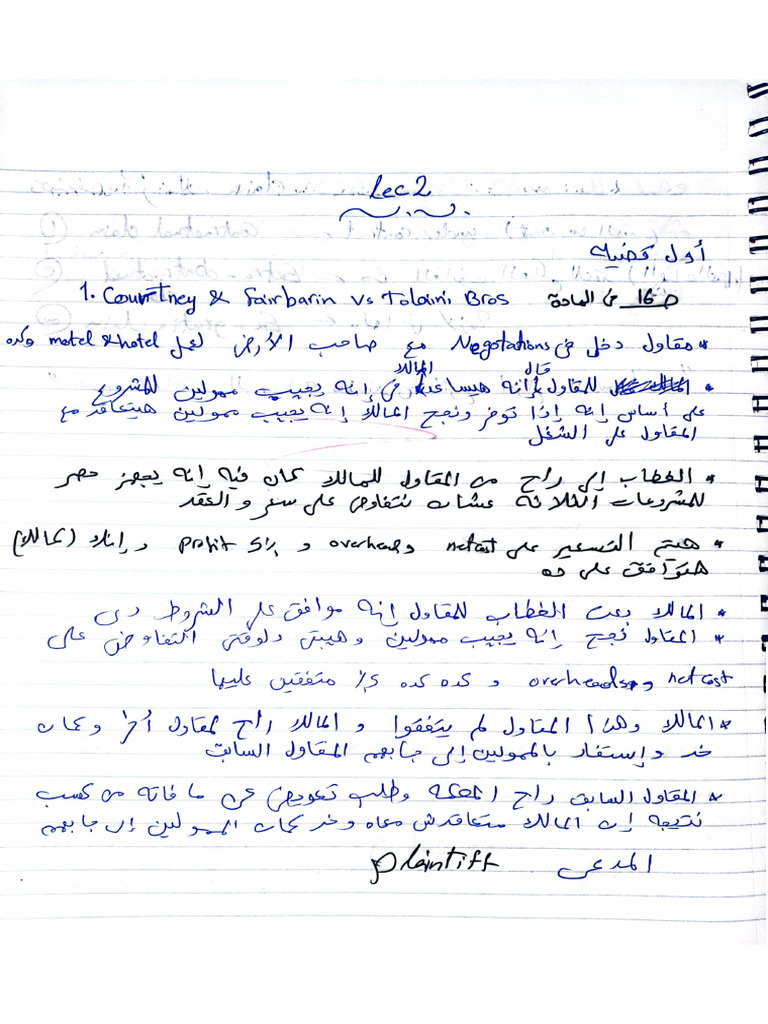 Lec 2
أول قضيه
1. Courtney & Fairbarin Vs Tolaini Bros ص 16 من المادة
* مقاول دخل في Negotations مع صاحب الأرض لعمل motel & hotel وكده
* المالك قال للمقاول إنه هيساعده في إنه يجيب ممولين للمشروع
على أساس إنه إذا توفر ونجح المالك إنه يجيب ممولين هيتعاقد مع
المقاول على الشغل
* الخطاب إلى راح من المقاول للمالك كان فيه إنه يجهز حصر
للمشروعات الثلاثة عشان نتفاوض على سعر والعقد
* هيتم التسعير على net cost و overhead و 5% profit و إنك (مالك)
هتوافق على ده
* المالك بعت الخطاب للمقاول إنه موافق على الشروط دى
* المقاول نجح إنه يجيب ممولين وهيبتى دلوقتى التفاوض على
net cost و overheads و كده كده 5% متفقين عليها
* المالك وهذا المقاول لم يتفقوا و المالك راح لمقاول أخر وكمان
خد وإستفاد بالممولين إلى جابهم المقاول السابق
* المقاول السابق راح المحكمة وطلب تعويض عن ما فاته من كسب
نتيجه إن المالك متعاقدش معاه وخد كمان الممولين إلى جابهم
المدعى plaintiff